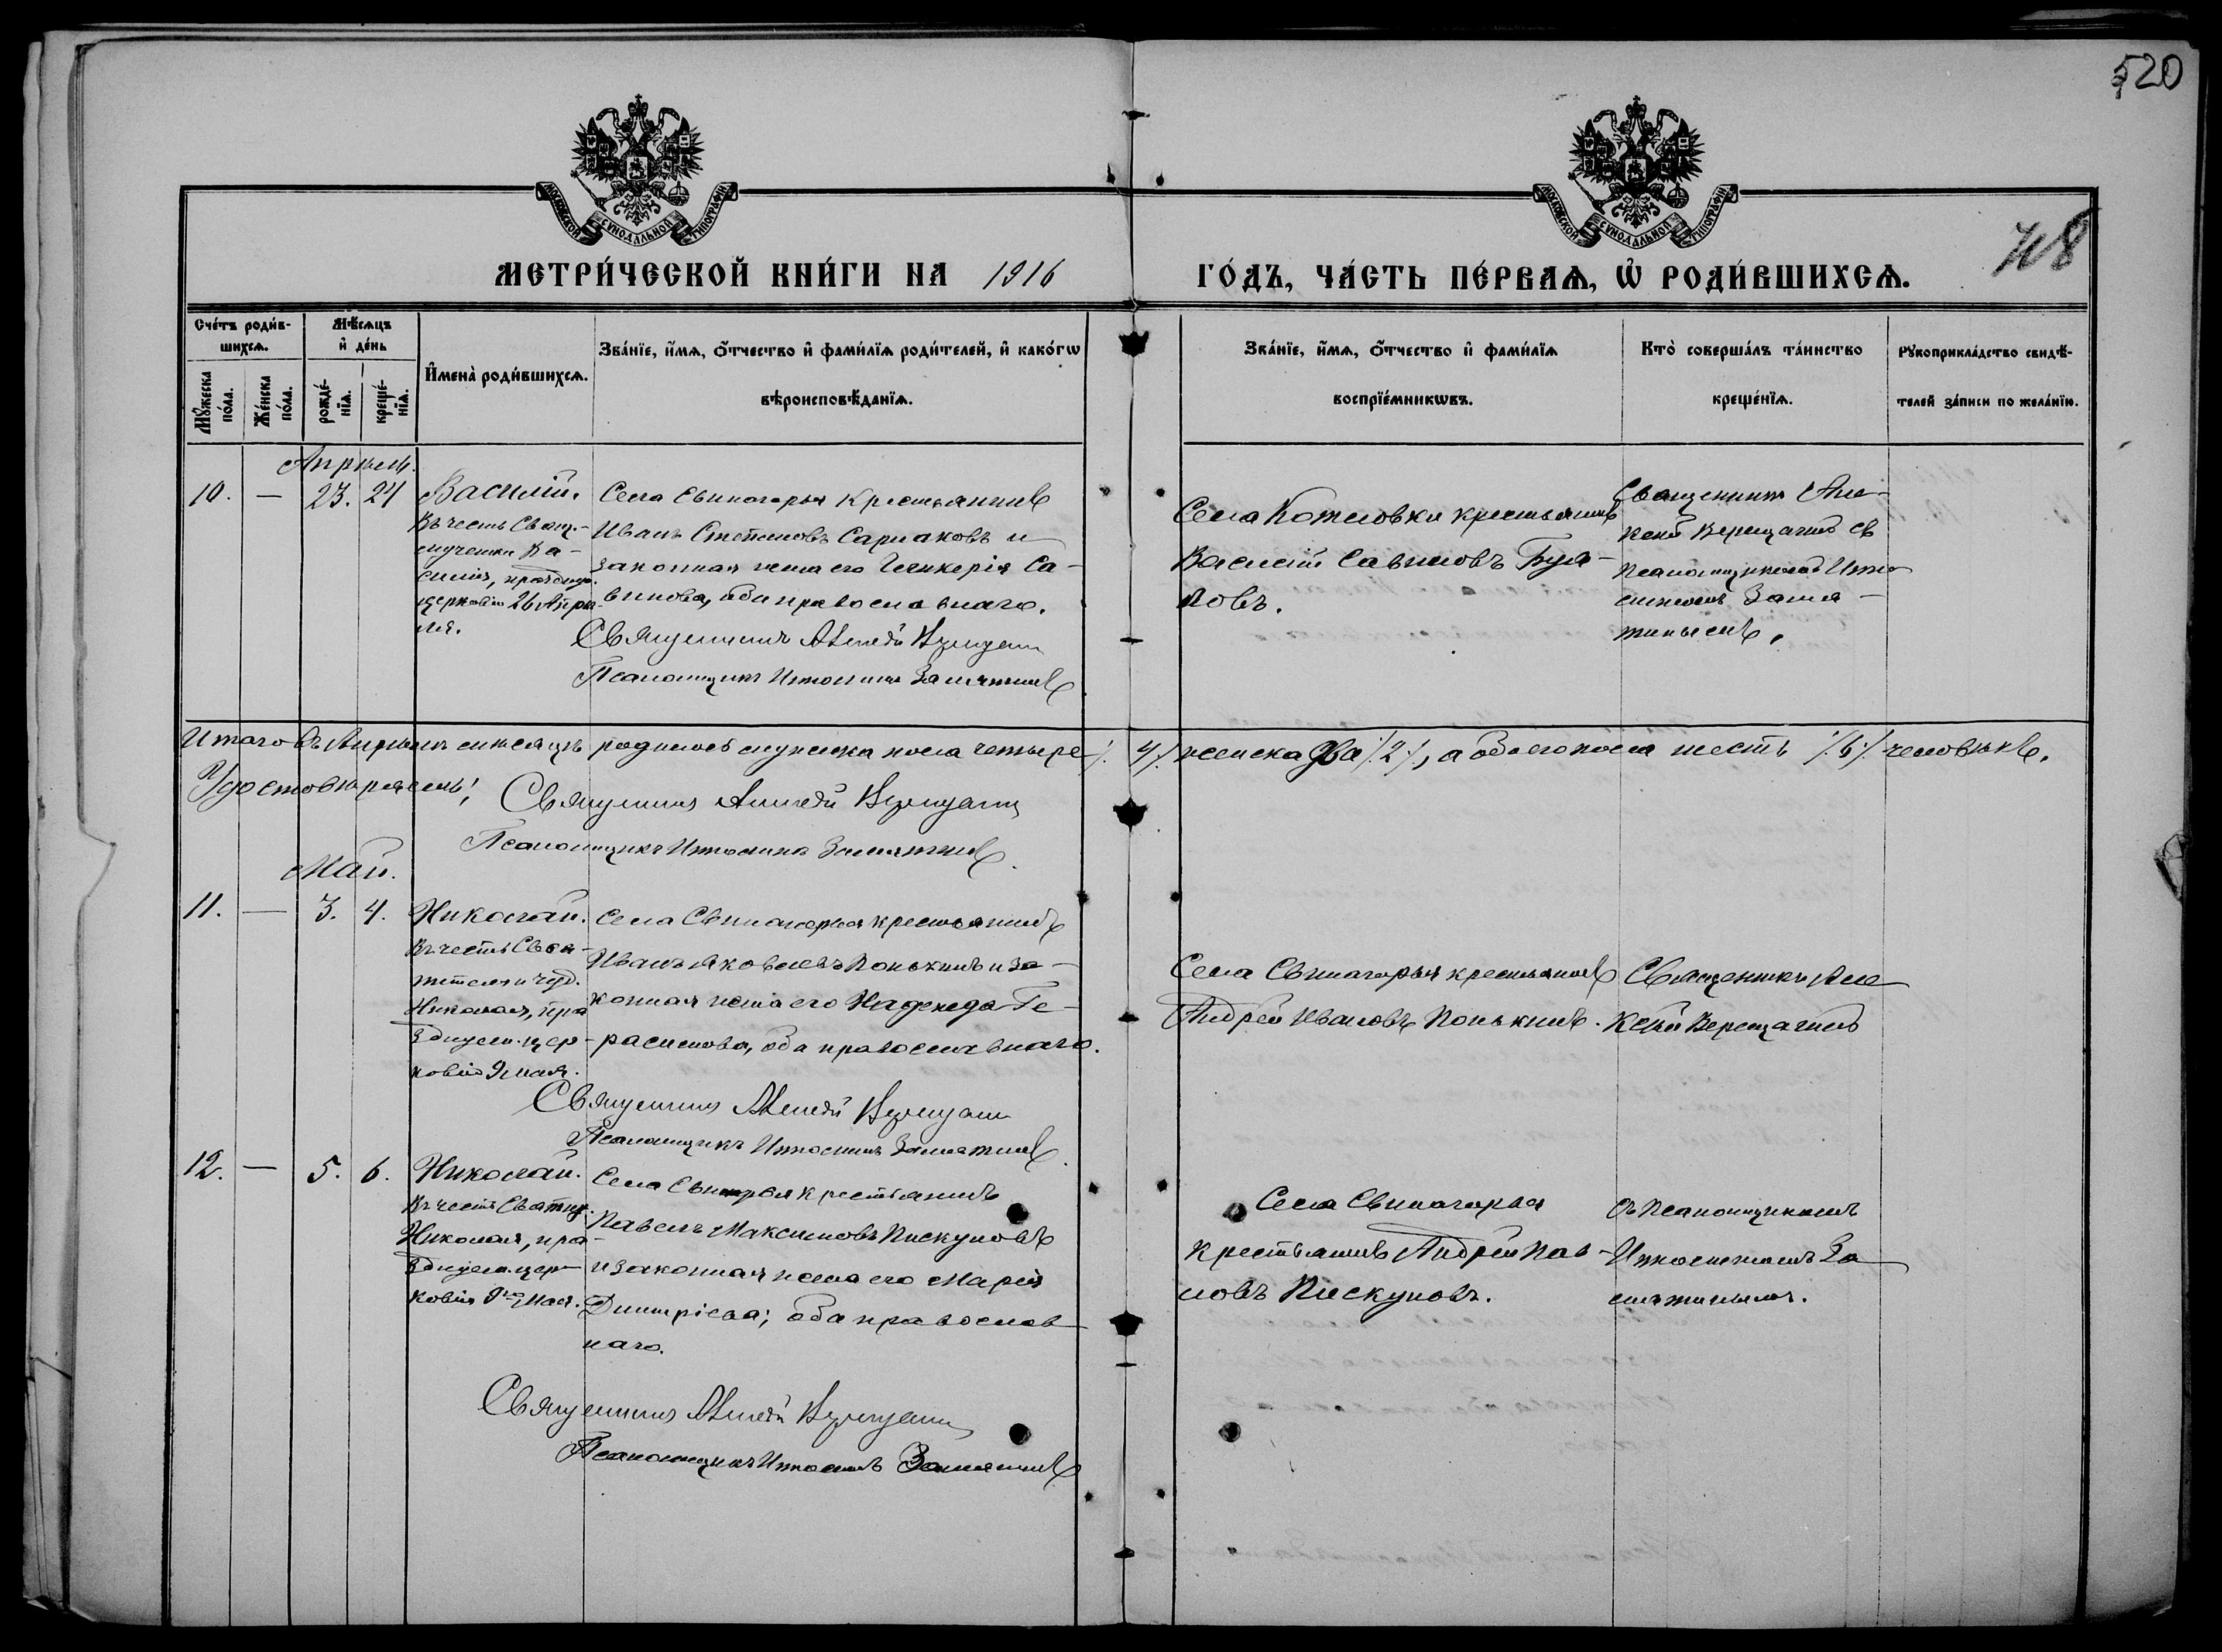 520
748
МОСКОВСКОЙ СУНОДАЛЬНОЙ ТИПОГРАФІИ
МОСКОВСКОЙ СУНОДАЛЬНОЙ ТИПОГРАФІИ
МЕТРИ́ЧЕСКОЙ КНИ́ГИ НА 1916
ГО́ДЪ, ЧА́СТЬ ПЕ́РВАѦ, Ѡ҆ РОДИ́ВШИХСѦ.
Сче́тъ роди́в-
шихсѧ.
Мѣ́сѧцъ
и҆ де́нь
Мꙋ́жеска
по́ла.
Же́нска
по́ла.
рожде́-
нїѧ.
креще́-
нїѧ.
И҆мена̀ роди́вшихсѧ.
Зва́нїе, и҆́мѧ, ѻ҆́тчество и҆ фами́лїѧ роди́телей, и҆ како́гѡ
вѣроисповѣ́данїѧ.
Зва́нїе, и҆́мѧ, ѻ҆́тчество и҆ фами́лїѧ
воспрїе́мникѡвъ.
Кто̀ соверша́лъ та́инство
креще́нїѧ.
Рꙋкоприкла́дство свидѣ́-
телей за́писи по жела́нїю.
Апрѣль.
10. — 23. 24
Василій.
Въ честь Свящ.-
мученика Ва-
силія, празднуе.
церковію 26 Апрѣ-
ля.
Села Свиногорья крестьянинъ
Иванъ Степановъ Сармаковъ и
законная жена его Гликерія Са-
винова, оба православнаго.
Священникъ Алексѣй Верещагинъ
Псаломщикъ Измаилъ Замятинъ
Села Котловки крестьянинъ
Василій Савиновъ Була-
ковъ.
Священникъ Але-
ксѣй Верещагинъ съ
псаломщикомъ Изма-
иломъ Замя-
тинымъ.
Итого въ Апрѣлѣ мѣсяцѣ родилось мужска пола четыре /. 4 /. женска два /. 2 /., а обоего пола шесть /. 6 /. человѣкъ.
Удостовѣряемъ:
Священникъ Алексѣй Верещагинъ
Псаломщикъ Измаилъ Замятинъ.
Май.
11. — 3. 4.
Николай.
Въ честь Свя-
тителя и чуд.
Николая, пра-
зднуем. цер-
ковію 9 мая.
Села Свиногорья крестьянинъ
Иванъ Яковлевъ Понькинъ и за-
конная жена его Надежда Ге-
расимова, оба православнаго.
Священникъ Алексѣй Верещагинъ
Псаломщикъ Измаилъ Замятинъ.
Села Свиногорья крестьянинъ
Андрей Ивановъ Понькинъ.
Священникъ Але-
ксѣй Верещагинъ
12. — 5. 6.
Николай.
Въ честь Святит.
Николая, пра-
зднуем. цер-
ковію 9го Мая.
Села Свиногорья крестьянинъ
Павелъ Максимовъ Пискуновъ
и законная жена его Марія
Димитріева; оба православ-
наго.
Священникъ Алексѣй Верещагинъ
Псаломщикъ Измаилъ Замятинъ
Села Свиногорья
крестьянинъ Андрей Пав-
ловъ Пискуновъ.
съ псаломщикомъ
Измаиломъ За-
мятинымъ.